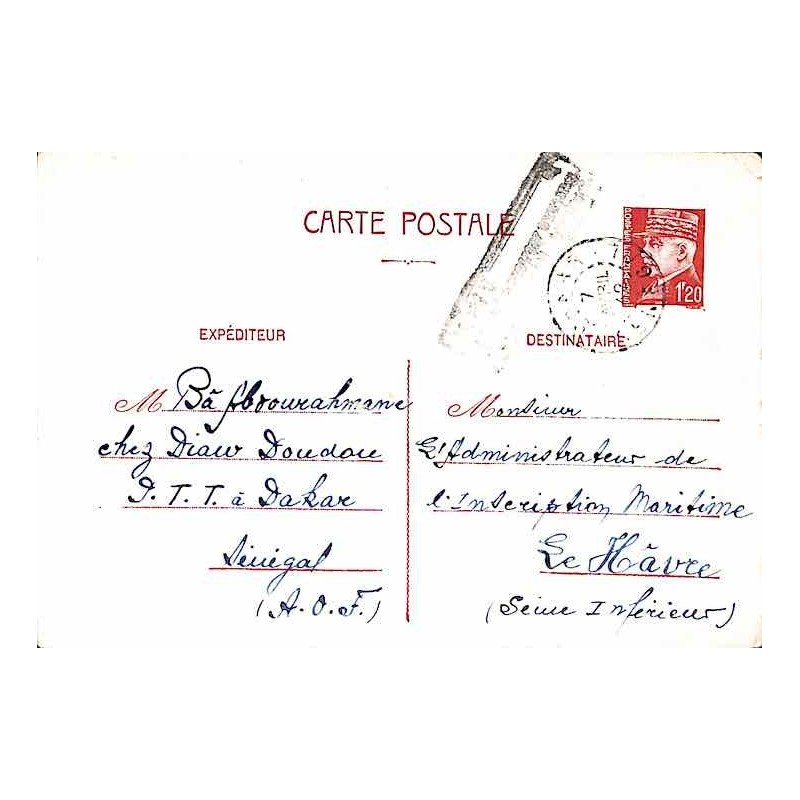 CARTE POSTALE
1F20
EXPÉDITEUR
M Bâ Abdourahmane
chez Diaw Doudou
P. T. T. à Dakar
Sénégal
(A. O. F.)
DESTINATAIRE
Monsieur
L'Administrateur de
l'Inscription Maritime
Le Hâvre
(Seine Inférieur)